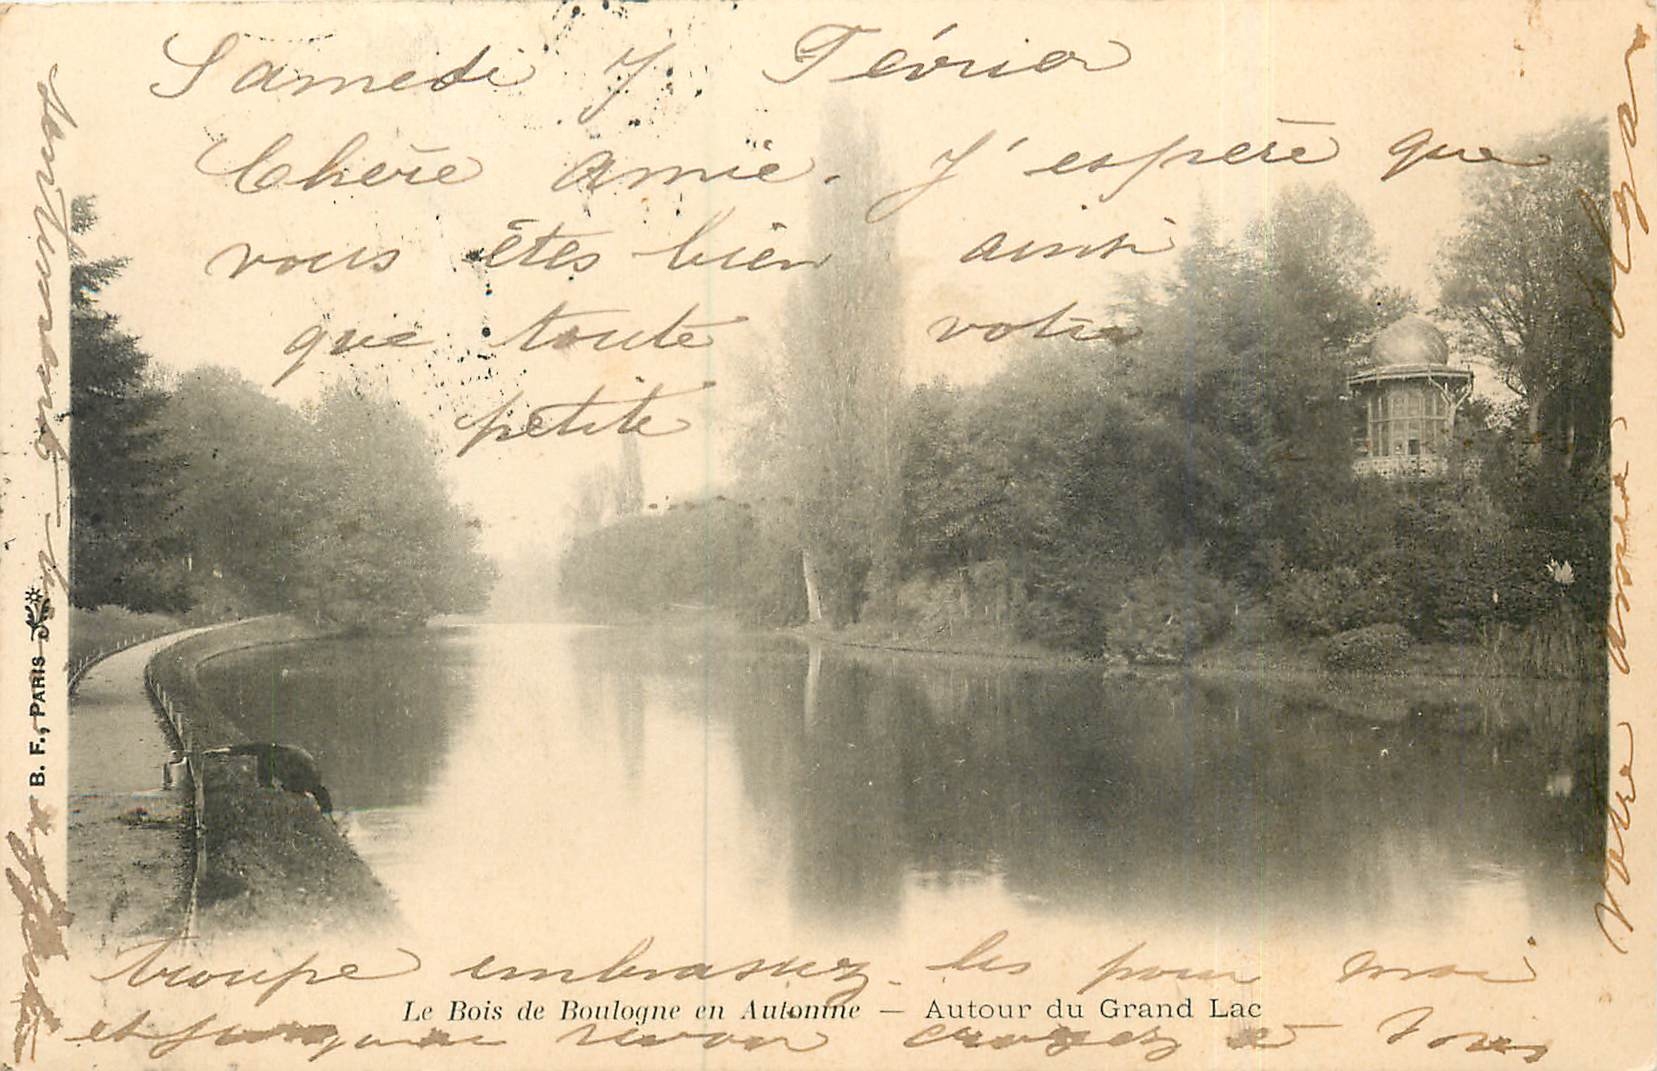 Samedi 7 Février
Chère amie. J'espère que
vous êtes bien ainsi
que toute votre
petite
troupe embrassez les pour moi
Le Bois de Boulogne en Automne — Autour du Grand Lac
et jusqu'au revoir croyez à tous
votre amie Olga
B. F., PARIS